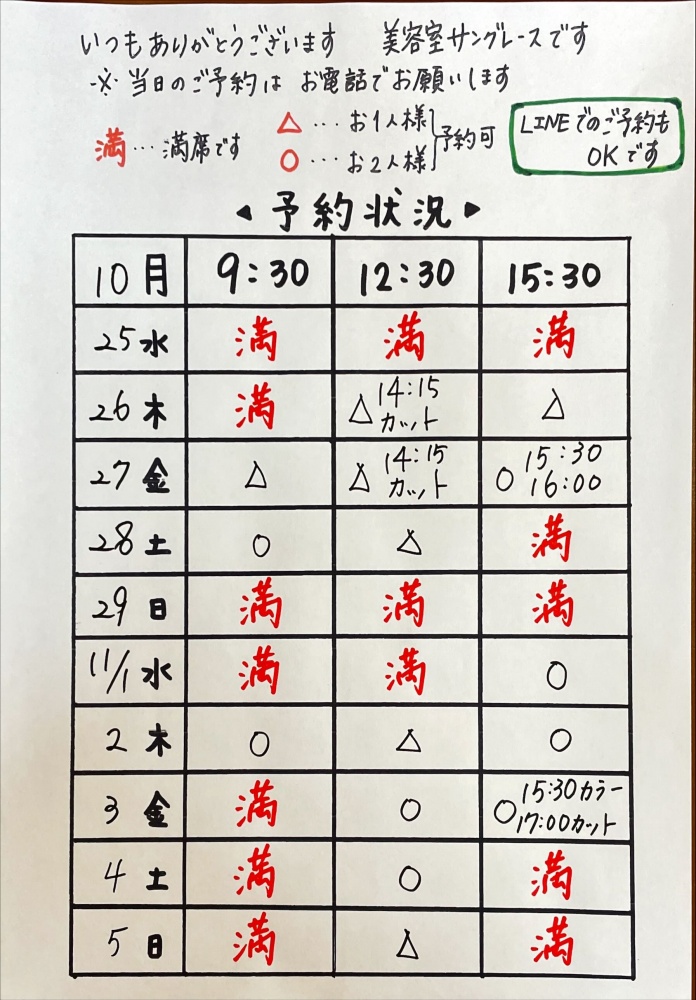 いつもありがとうございます 美容室サングレースです
※当日のご予約は お電話でお願いします
満…満席です
△…お1人様
○…お2人様
予約可
LINEでのご予約も
OKです
◀予約状況▶
10月 9:30 12:30 15:30
25水 満 満 満
26木 満 △14:15カット △
27金 △ △14:15カット ○15:30 16:00
28土 ○ △ 満
29日 満 満 満
11/1水 満 満 ○
2木 ○ △ ○
3金 満 ○ ○15:30カラー 17:00カット
4土 満 ○ 満
5日 満 △ 満